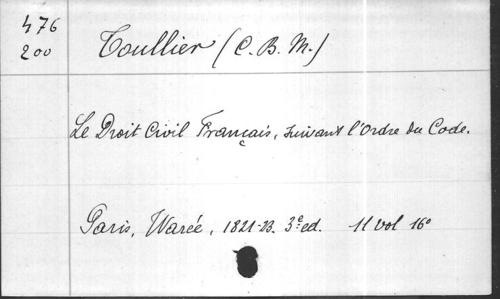 476
200
Toullier (C. B. M.)
Le Droit Civil Français, suivant l'Ordre du Code.
Paris, Warée, 1821-23. 3e ed. 11 vol 16o